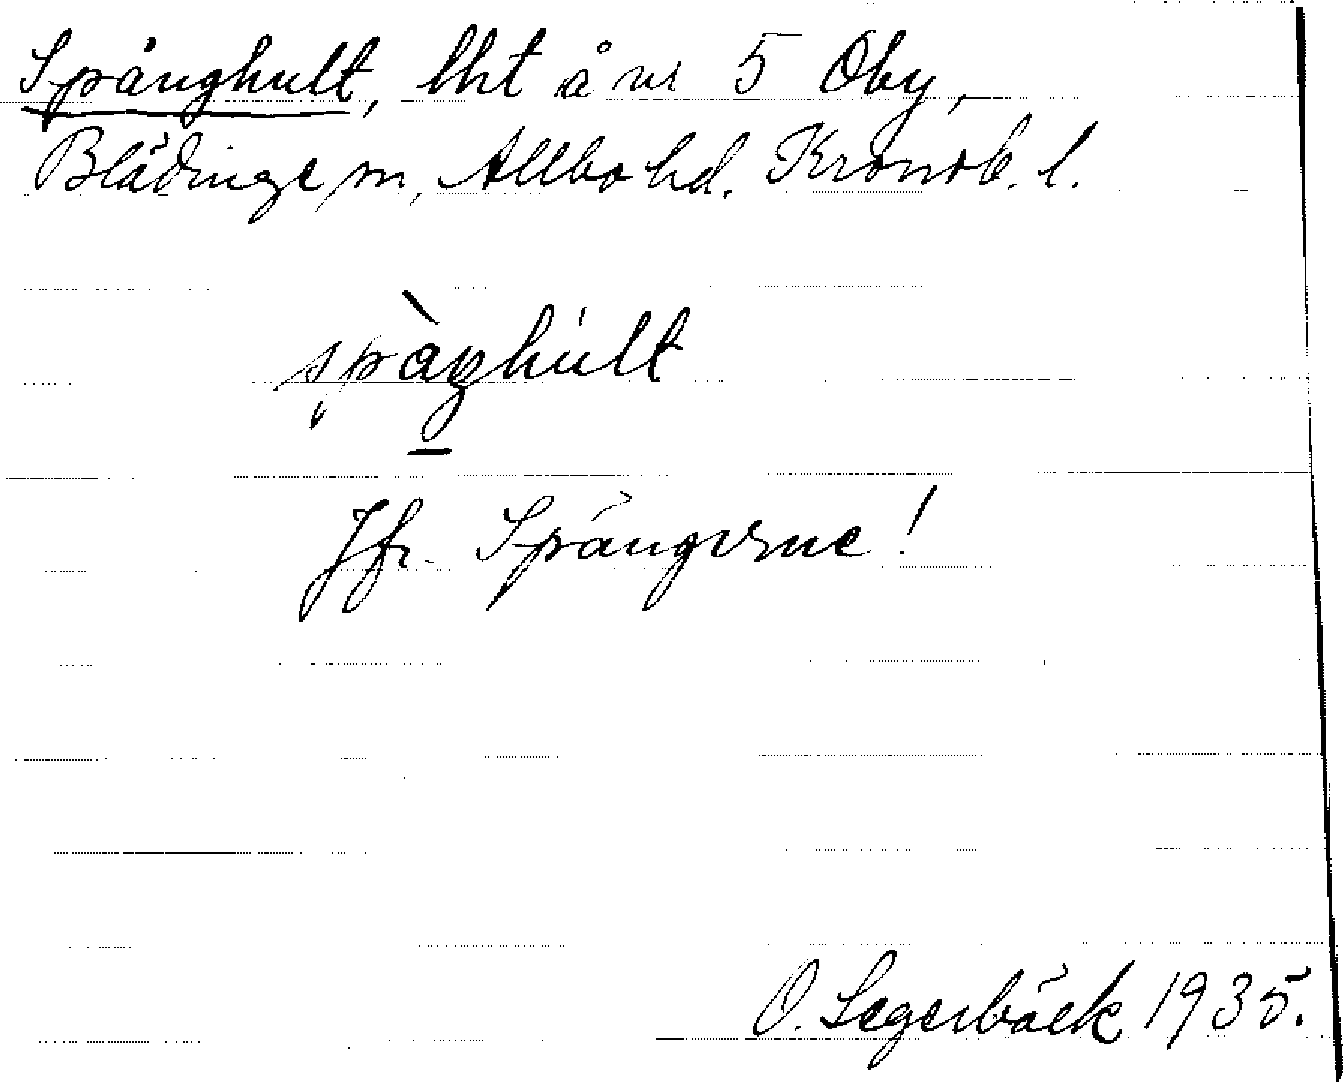 Spånghult, lht å nr 5 Oby,
Blädinge sn, Allbo hd. Kronob. l.
spàŋhùlt
Jfr. Spångerne!
O. Segerbäck 1935.